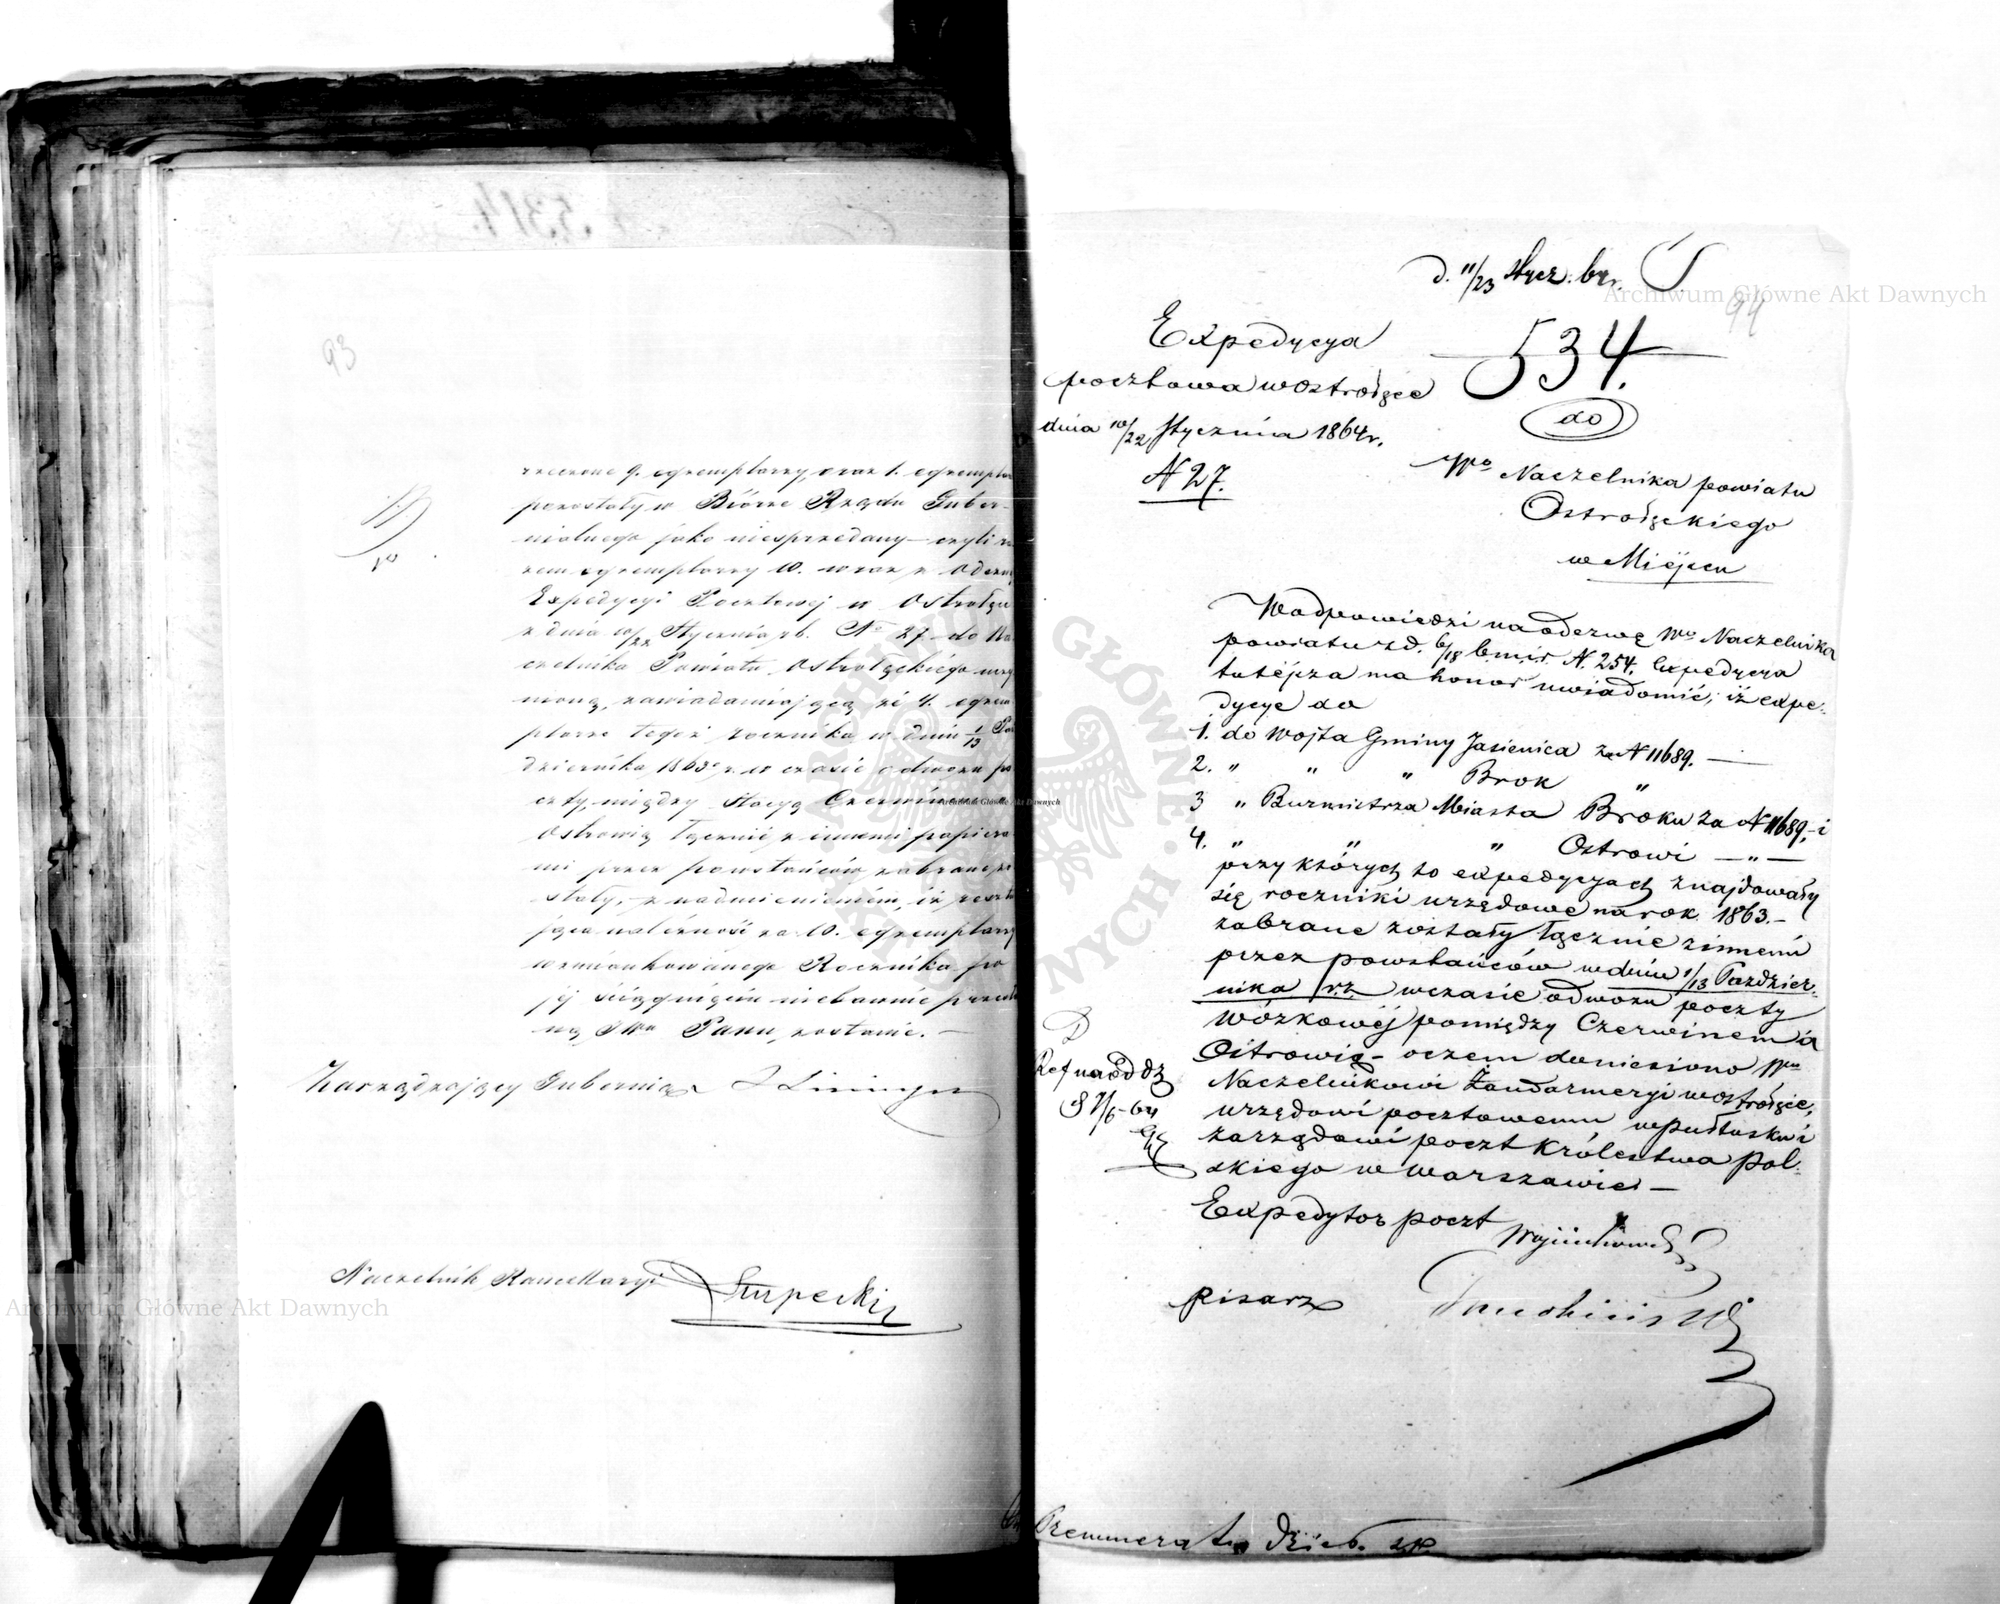 93
rzeczone 9. egzemplarzy, oraz 1. egzemplarz
pozostały w Biórze Rządu Guber-
nialnego jako niesprzedany czyli ra
zem egzemplarzy 10. wraz z Odezwą
Expedycyi Pocztowej w Ostrołęce
z dnia 10/22 Stycznia rb. No 27 do Na
czelnika Powiatu Ostrołęckiego uczy
nioną, zawiadamiającą że 4. egzem
plarze tegoż rocznika w dniu 1/13 Paź
dziernika 1863 r. w czasie odwozu po
czty, między Stacyą Czerwinem a
Ostrowią łącznie z innemi papiera
mi przez powstańców zabrane zo
stały, z nadmienieniem, iż reszta
jąca należność za 10. egzemplarzy
wzmiankowanego Rocznika po
jéj ściągnięciu niebawnie przesła
ną JWu Panu, zostanie. —
Zarządzający Gubernią
Naczelnik Kancellaryi Słupecki
d. 11/23 stycz. br.
94
534.
do
Expedycya
pocztowa w Ostrołęce
dnia 10/22 Stycznia 1864 r.
N 27.
Wo Naczelnika powiatu
Ostrołęckiego
w Miéjscu
W odpowiedzi na odezwę Wo Naczelnika
powiatu z d. 6/18 b. m. i r. N. 254. Expedycya
tutéjsza ma honor uwiadomić, iż expe-
dycye do
1. do Wojta Gminy Jasienica za N 11689. —
2. " " " Brok "
3 " Burmistrza Miasta Broku za N 11689, i
4. " " " Ostrowi — " —
przy których to expedycyach znajdowały
się roczniki urzędowe na rok 1863. —
zabrane zostały łącznie z innemi
przez powstańców w dniu 1/13 Paździer-
nika r. z. w czasie odwozu poczty
wózkowéj pomiędzy Czerwinem a
Ostrowią — o czem doniesiono Wu
Naczelnikowi Żandarmeryi w Ostrołęce,
urzędowi pocztowemu w Pułtusku i
zarządowi poczt Królestwa Pol-
skiego w Warszawie. —
Expedytor poczt Wojciechowski
pisarz
Prenumerata Dzieł